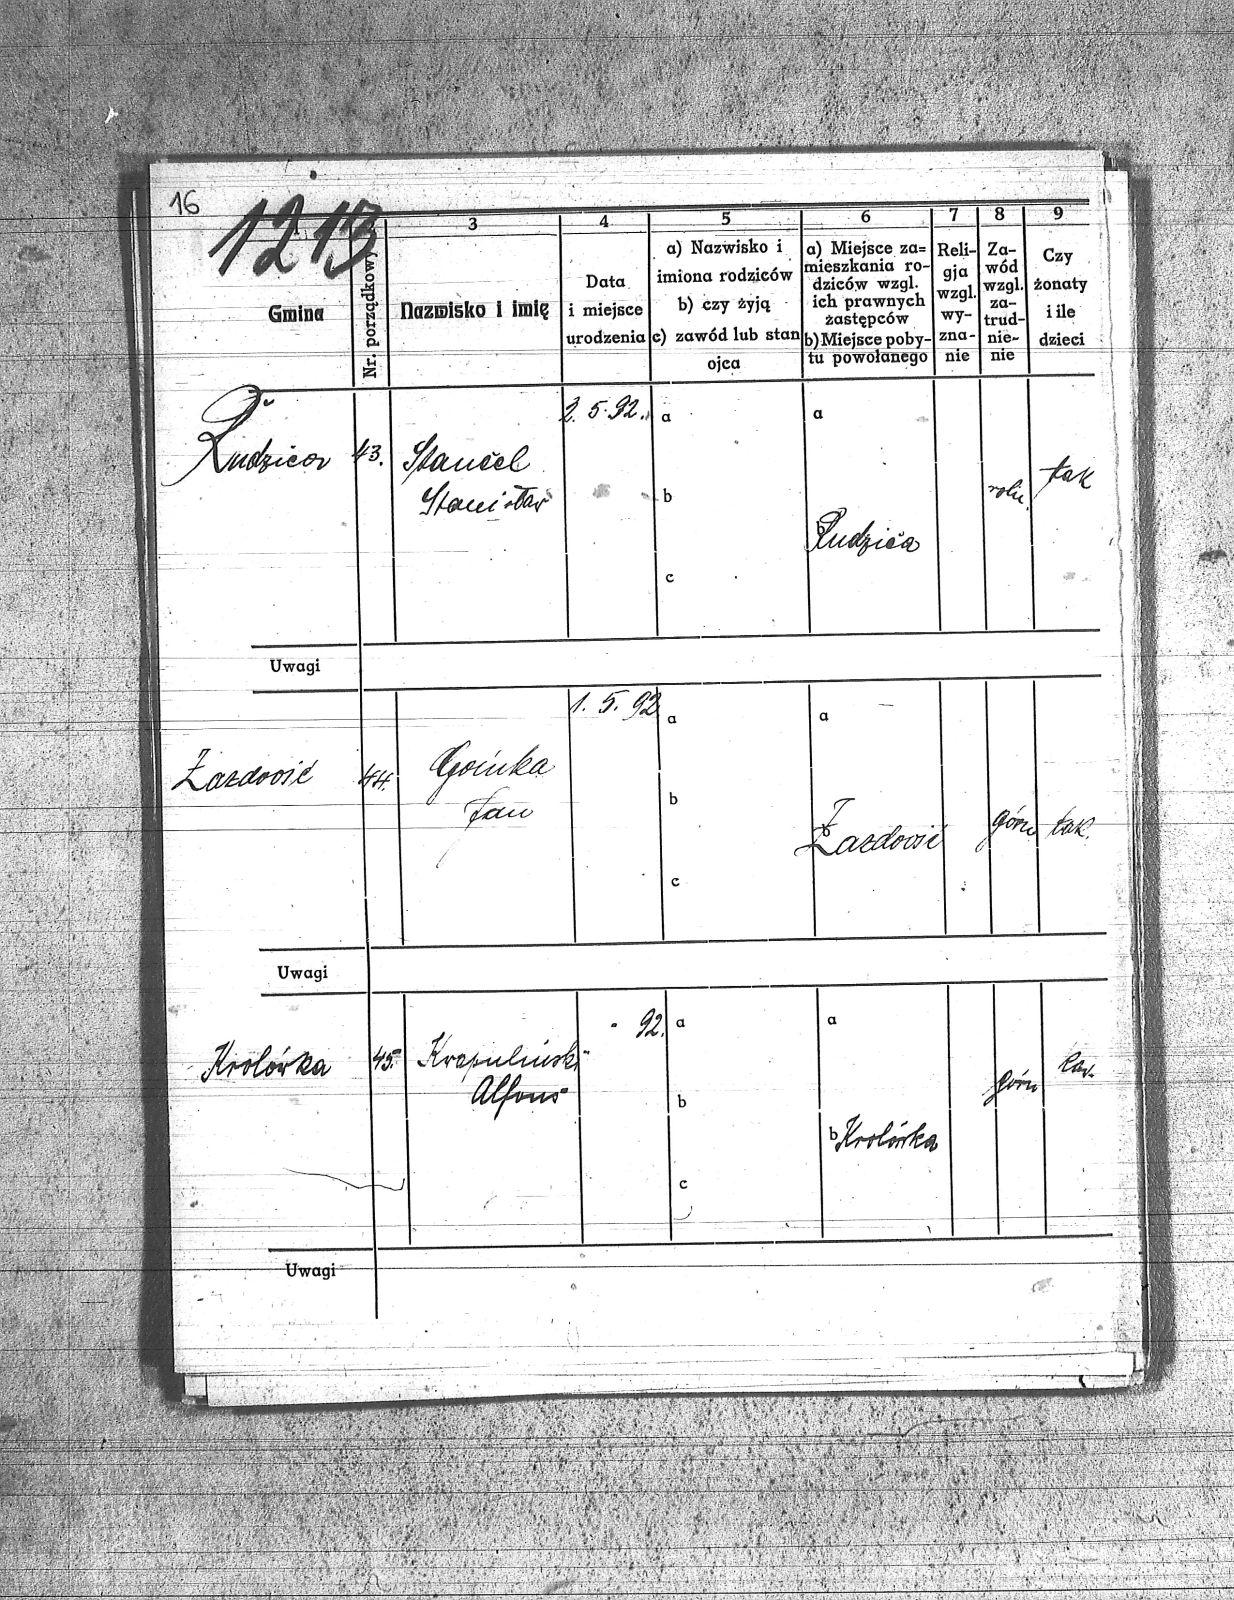 16
1213
3
4
5
6
7
8
9
Gmina
Nr. porządkowy
Nazwisko i imię
Data
i miejsce
urodzenia
a) Nazwisko i
imiona rodziców
b) czy żyją
c) zawód lub stan
ojca
a) Miejsce za=
mieszkania ro-
dziców wzgl.
ich prawnych
zastępców
b) Miejsce poby-
tu powołanego
Reli-
gja
wzgl.
wy-
zna-
nie
Za-
wód
wzgl.
za-
trud-
nie-
nie
Czy
żonaty
i ile
dzieci
Rudzica
43.
Stanisław
2. 5. 92.
a
b
c
a
b
Rudzica
roln.
tak
Uwagi
Zazdrość
44.
Goińka
Jan
1. 5. 92
a
b
c
a
b
Zazdrość
górn
tak.
Uwagi
Krolówka
45.
Krepuliński
Alfons
- 92.
a
b
c
a
b Krolówka
górn
Uwagi